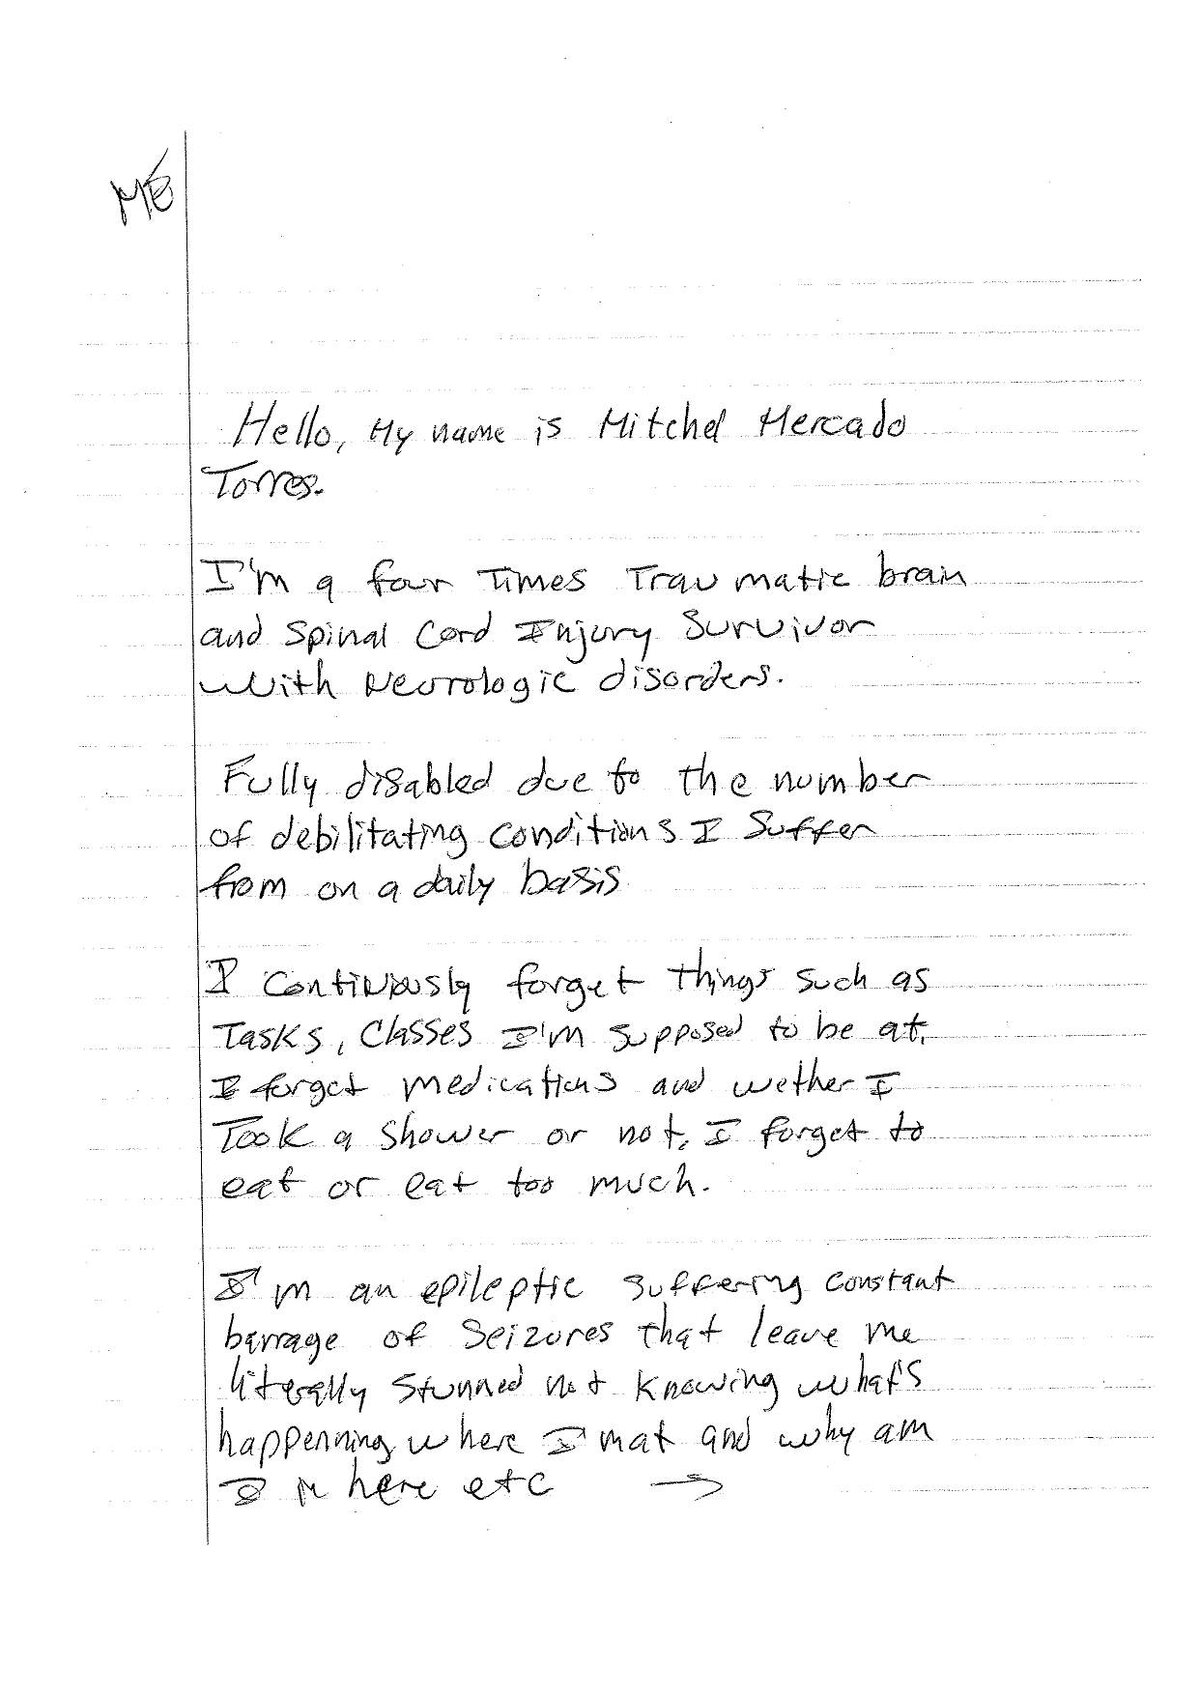 ME
Hello, My name is Mitchel Mercado
Torres.
I'm a four Times Traumatic brain
and Spinal Cord Injury Survivor
With Neurologic disorders.
Fully disabled due to the number
of debilitating conditions I Suffer
from on a daily basis
I continuously forget things such as
Tasks, Classes I'm supposed to be at.
I forget medications and wether I
Took a Shower or not. I forget to
eat or eat too much.
I'm an epileptic suffering constant
barrage of Seizures that leave me
literally Stunned not knowing what's
happenning where I'm at and why am
I here etc →